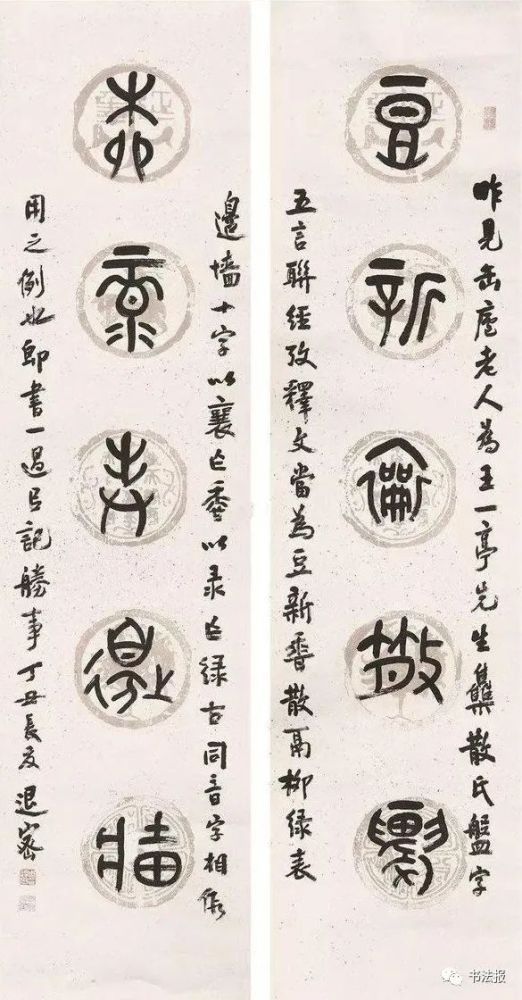 昨見缶廬老人為王一亭先生集散氏盤字
豆新散
五言聯經攷釋文當為豆新香散鬲柳綠表
邊墻十字以襄亡以彔亡綠古同音字相假
柳彔表邊墻
用之例也即書一過吕記勝事丁丑長夏退密
书法报